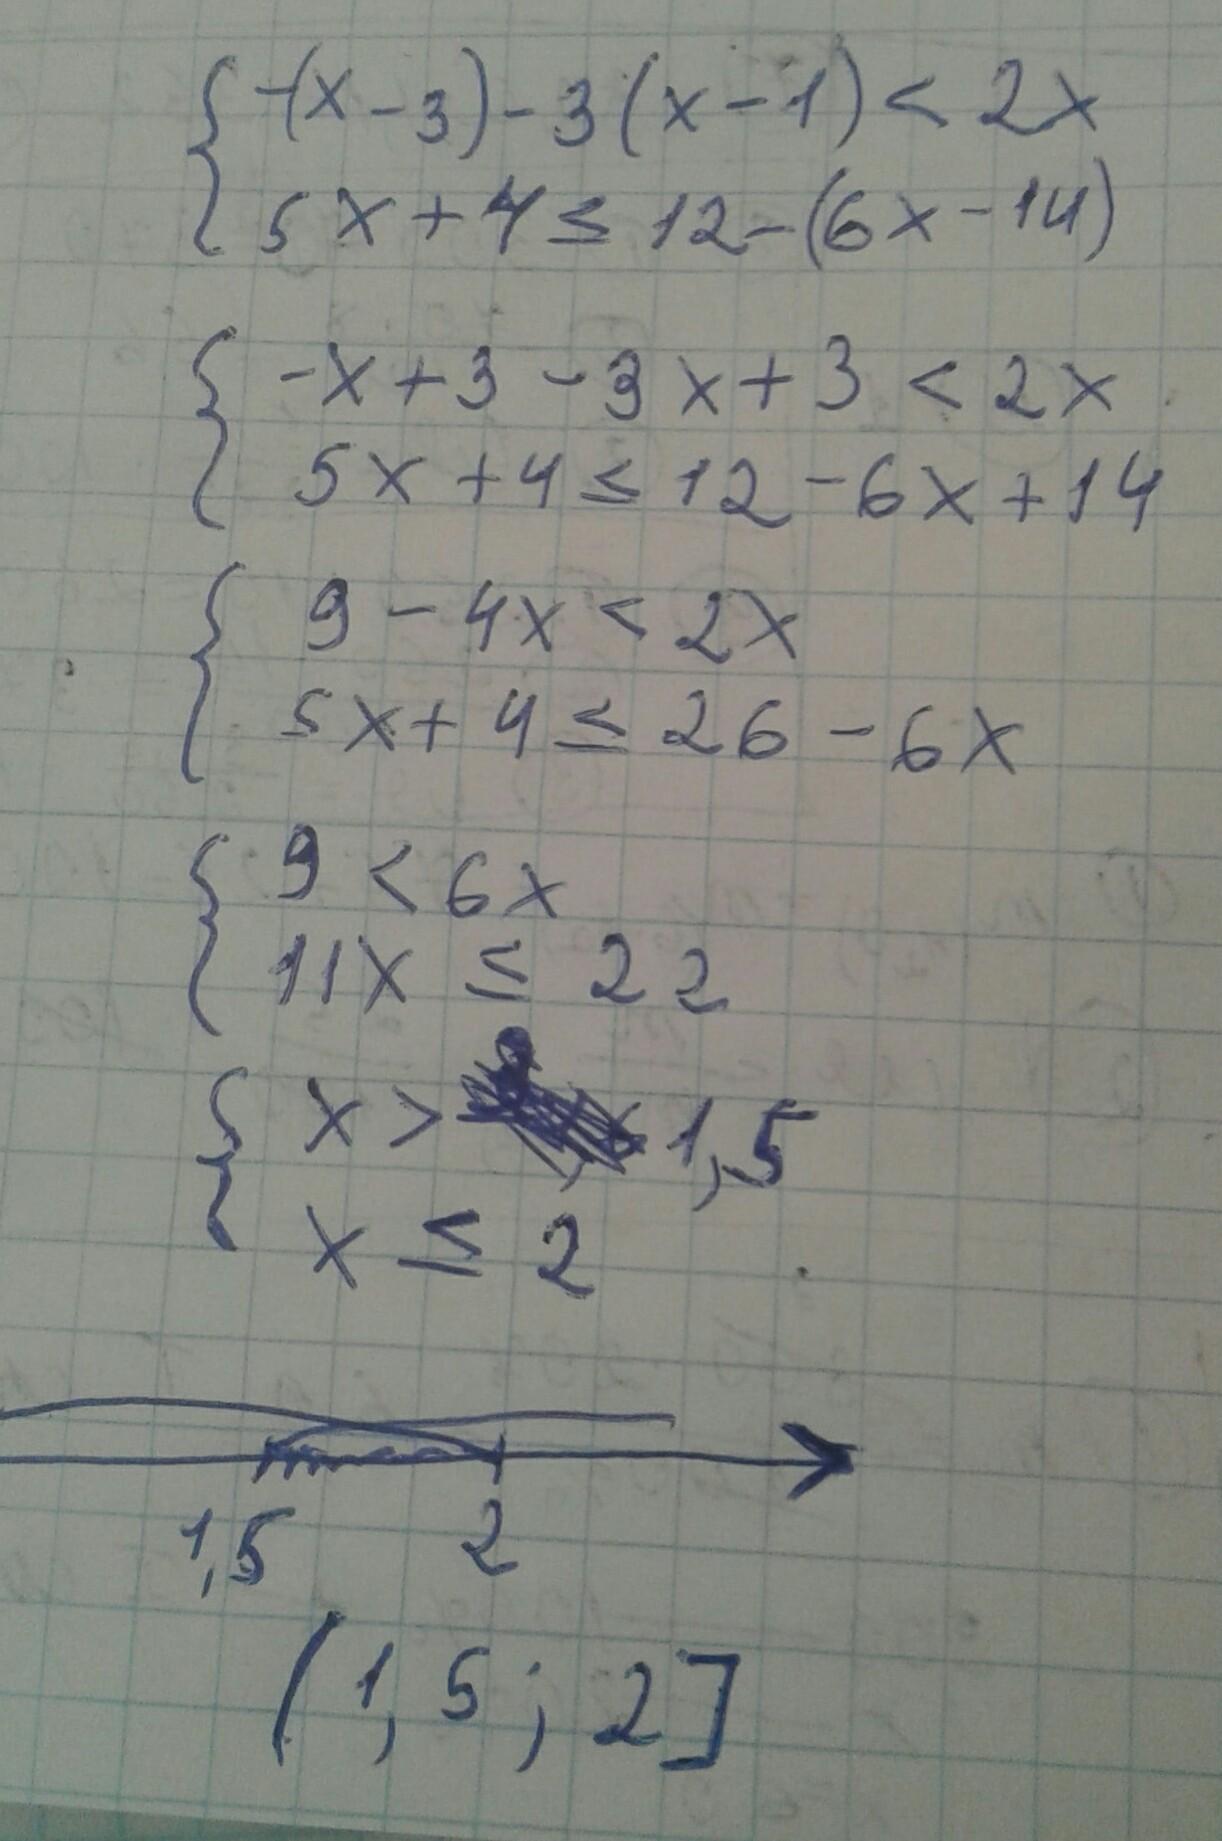 -(x-3)-3(x-1)<2x
5x+4≤12-(6x-14)
-x+3-3x+3<2x
5x+4≤12-6x+14
9-4x<2x
5x+4≤26-6x
9<6x
11x≤22
x>1,5
x≤2
1,5 2
(1,5;2]